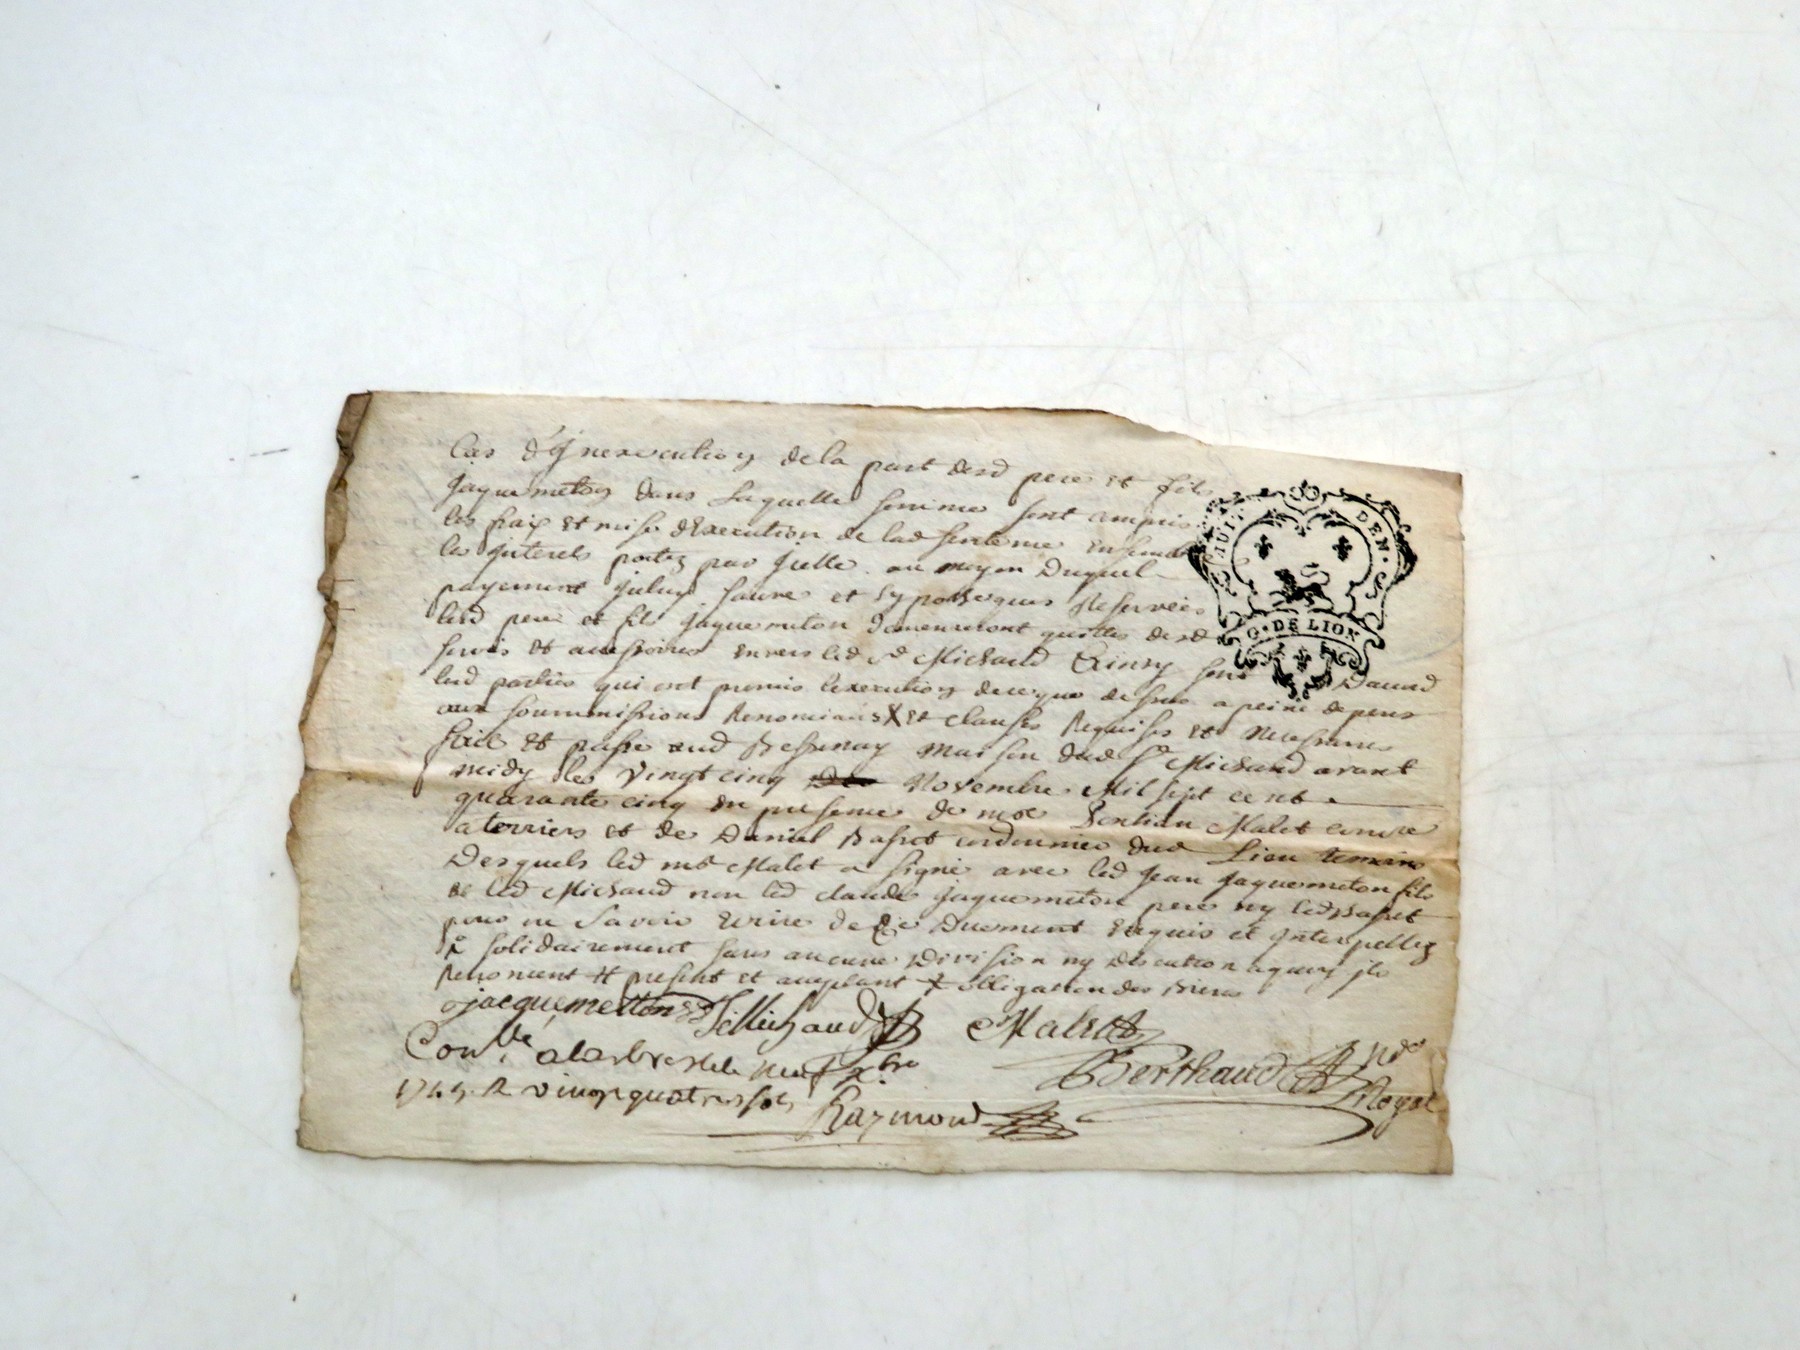 Cas d'Jnexecution de la part desd pere et fils
Jaquemeton dans Laquelle somme sont compris
les fraix et mise dExecution de lad sentence Ensemble
les Jnterets portez par Jcelle. au moyen Duquel
payement Jceluy sauve et hypotheques Reservées
lesd pere et fils Jaquemeton demeureront quittes desd
servis et accessoires envers led Sr Michaud Ainsy
lesd parties qui ont promis lexecution de ce que dessus a peine de
aux soummissions Renonciaõns X et clauses Requises et Necessaires
fait et passé aud Bessenay maison dud Sr Michaud avant
midy Les vingt cinq Novembre Mil sept cent
quarante cinq en presence de mre Malet
a terriers et de Daniel Basset cordonnier dud Lieu temoins
Desquels led mre Malet a signé avec led Jean Jaquemeton fils
et led Michaud non led claude Jaquemeton pere ny led Basset
pour ne savoir Ecrire de ce Duement Enquis et Jnterpellez
solidairement sans aucune Division ny discution aquoy jls
Renoncent # present et acceptant X obligation des Biens
jacquemetton Michaud Malet
Conlé alarbresle neuf xbre
1745. R vingt quatre sols
Berthaud Nore Royal
Raymond
DE LION